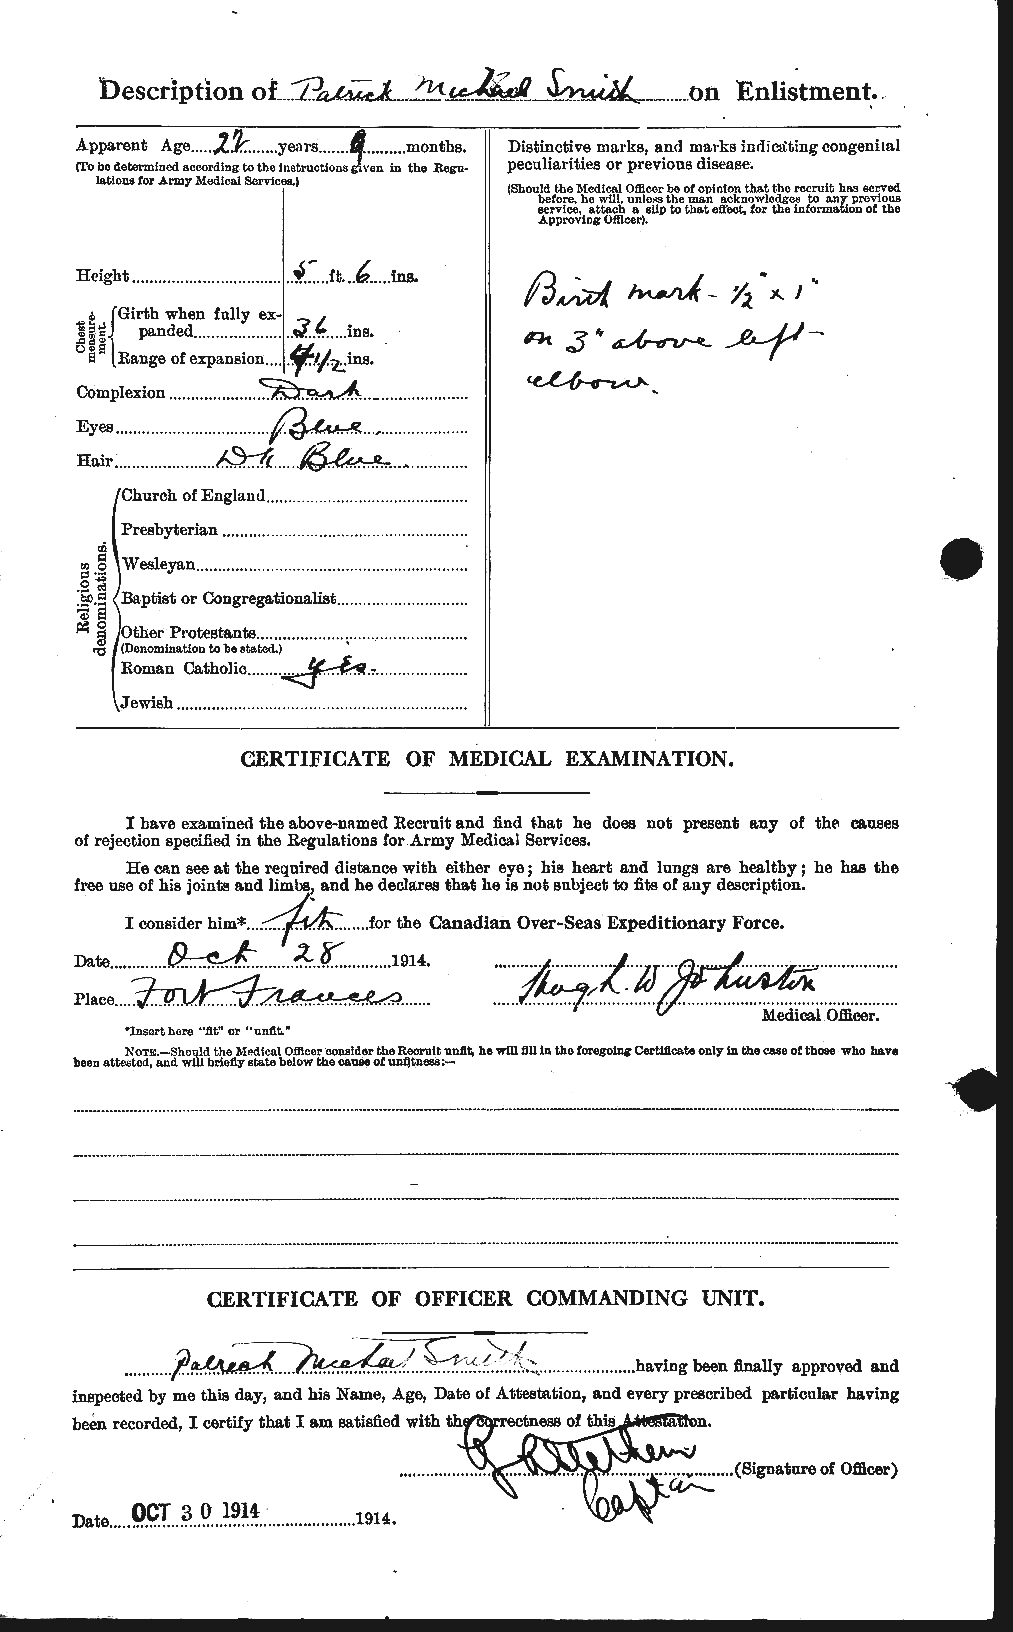 Description of Patrick Michael Smith on Enlistment.
Apparent Age 22 years 9 months.
(To be determined according to the instructions given in the Regulations for Army Medical Services.)
Height 5 ft. 6 ins.
Chest measurement.
Girth when fully expanded 36 ins.
Range of expansion 4 1/2 ins.
Complexion Dark
Eyes Blue
Hair Dk Blue
Religious denominations.
Church of England
Presbyterian
Wesleyan
Baptist or Congregationalist
Other Protestants
(Denomination to be stated.)
Roman Catholic yes-
Jewish
Distinctive marks, and marks indicating congenital
peculiarities or previous disease.
(Should the Medical Officer be of opinion that the recruit has served
before, he will, unless the man acknowledges to any previous
service, attach a slip to that effect, for the information of the
Approving Officer).
Birth mark - 1/2" x 1"
on 3" above left -
elbow.
CERTIFICATE OF MEDICAL EXAMINATION.
I have examined the above-named Recruit and find that he does not present any of the causes
of rejection specified in the Regulations for Army Medical Services.
He can see at the required distance with either eye; his heart and lungs are healthy; he has the
free use of his joints and limbs, and he declares that he is not subject to fits of any description.
I consider him* fit for the Canadian Over-Seas Expeditionary Force.
Date Oct 28 1914.
Place Fort Frances
Hugh. W Johnston
Medical Officer.
*Insert here "fit" or "unfit."
NOTE.—Should the Medical Officer consider the Recruit unfit, he will fill in the foregoing Certificate only in the case of those who have
been attested, and will briefly state below the cause of unfitness:—
CERTIFICATE OF OFFICER COMMANDING UNIT.
Patrick Michael Smith having been finally approved and
inspected by me this day, and his Name, Age, Date of Attestation, and every prescribed particular having
been recorded, I certify that I am satisfied with the correctness of this Attestation.
(Signature of Officer)
Captain
Date OCT 30 1914 1914.